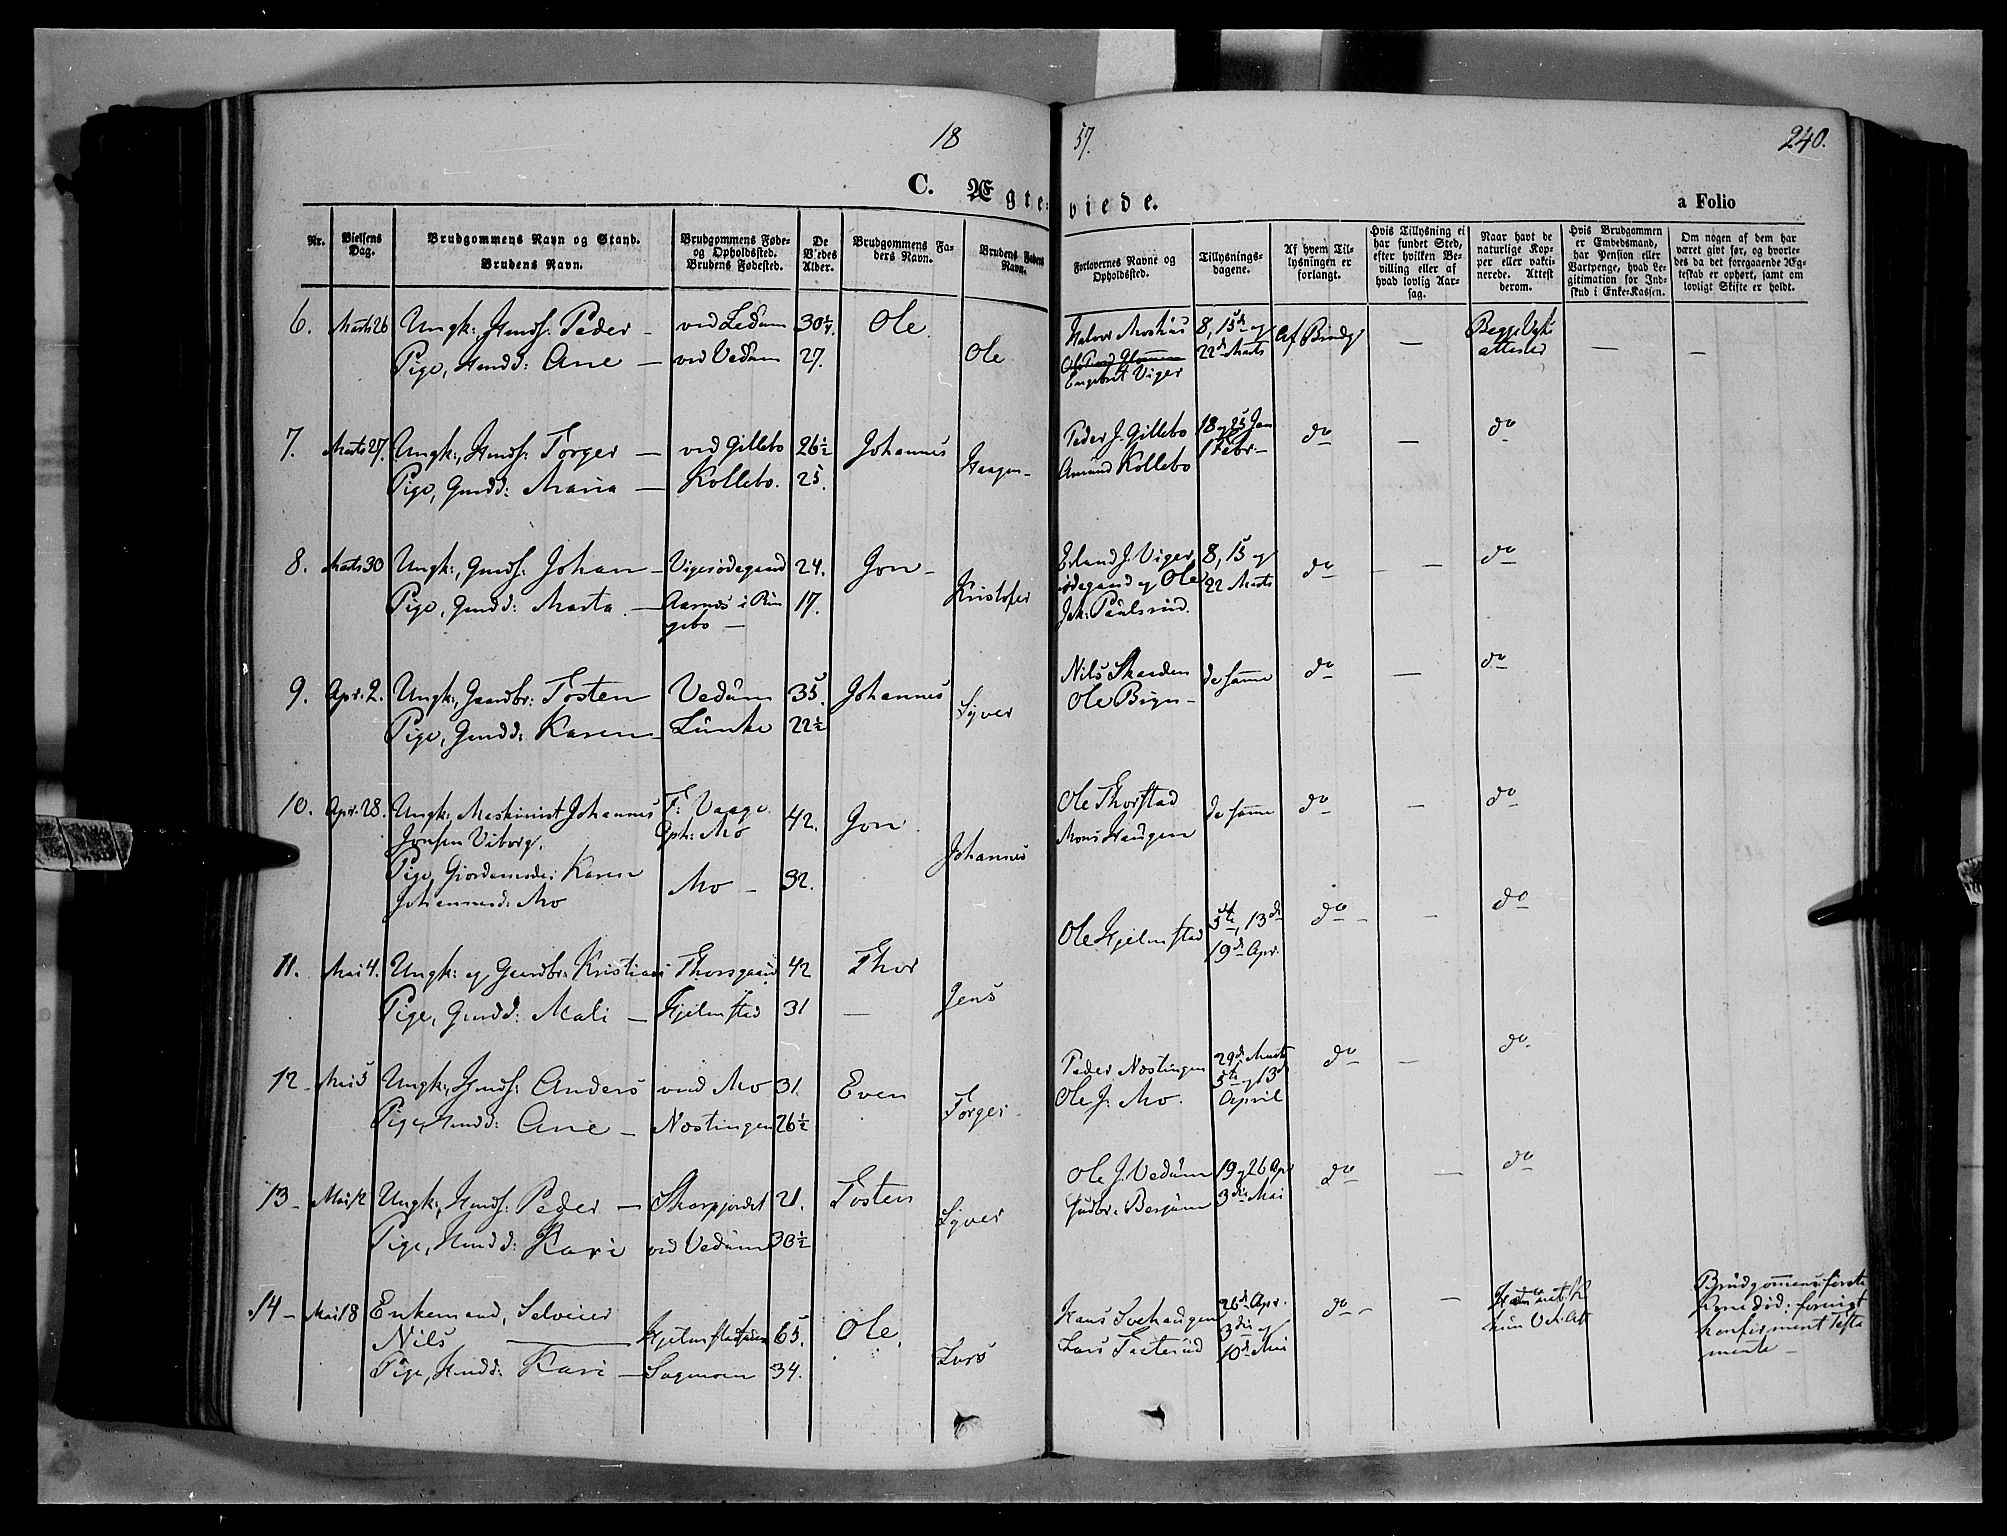 18 57. 240.
C. Ægteviede. a Folio
Nr.
Vielsens Dag.
Brudgommens Navn og Stand. Brudens Navn.
Brudgommens Føde- og Opholdssted. Brudens Fødested.
De V'edes Alder.
Brudgommens Faders Navn.
Brudens Faders Navn.
Forlovernes Navne og Opholdssted.
Tillysningsdagene.
Af hvem Tillysningen er forlangt.
Hvis Tillysning ei har fundet Sted, efter hvilken Bevilling eller af hvad lovlig Aarsag.
Naar havt de naturlige Kopper eller vaktinerede. Attest derom.
Hvis Brudgommen er Embedsmand, har Pension eller Vartpenge, hvad Legitimation for Indskud i Enke-Kassen.
Om nogen af dem har været givt før, og hvorledes da det foregaaende Ægteskab er ophørt, samt om lovligt Skifte er holdt.
6. Marts 26 Ungk: Huusf: Peder – ved Ledum 30¼ Ole. Halvor Moshus 8, 15de og Af Brudg Begge Vak:
Pige, Huusd: Ane – ved Vedum 27. Ole 22de Marts — attester — —
Engebret Viger
7. Marts 27. Ungk:, Huusf: Torger – ved Gillebo 26½ Johannes Peder J. Gillebo 18 og 25 Jan do — do
Pige, Gaardd: Maria – Kollebo. 25. Haagen – Amund Kollebo 1 Febr –
8. Marts 30 Ungk:, Gaardf: Johan – Vigerødegaard 24. Jon – Erland J. Viger 8, 15 og do — do
Pige, Gaardd: Marta. – Aarnes i Rin 17. Kristofer ødegaard og Ole 22 Marts
gebo – Joh: Paulsrud.
9. Apr. 2. Ungk:, Gaardbr: Tosten Vedum 35. Johannes Nils Skarden de samme do — do
Pige, Gaardd: Karen – Lunke 22½ Syver Ole Bign –
10. Apr. 28. Ungk:, Maskinist Johannes F: Vaage 42. Jon. Ole Thorstad de samme do — do
Jonsen Viborg. Oph: Mo Mons Haugen
Pige, Giordemoder Karen Johannes
Johannesd: Mo Mo – 32.
11. Mai 4. Ungk: og Gaardbr: Kristian Thorsgaard 42 Thor Ole Hjelmstad 5te, 13de do – — do
Pige, Gaardd: Mali – Hjelmstad 31 — Jens 19de Apr.
12 – Mai 5 Ungk:, Huusf: Anders ved Mo 31. Even Peder Nøstingen 29de Marts do — do
Pige, Huusd: Ane – Nøstingen 26½ Torger Ole J: Mo. 5te og 13de
April
13 – Mai 12 Ungk:, Huusf: Peder – Skarpjordet 21. Tosten Ole J. Vedum 19 og 26 Apr do — do
Pige, Huusd: Kari ved Vedum 30½ Syver Gudbr: Berjum 3die Mai
14 – Mai 18 Enkemand, Selveier Hans Svehaugen 26de Apr. do – — Brudgommens første
Nils — Hjelmstadeien 65. Ole. Lars 3die og Kone død: forevigt
Pige, Huusd: Kari – Sagmoen 34. Lars 10de Mai hun Vak: Att konfirmeret Testa
mente –